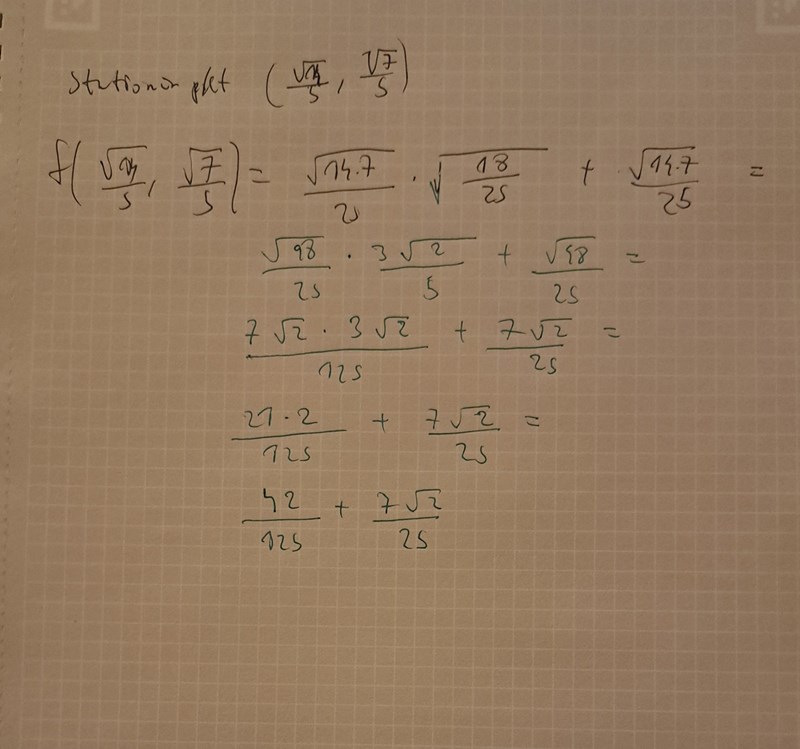 Stationär pkt (√14/5, √7/5)
f(√14/5, √7/5) = √14·7/25 · √18/25 + √14·7/25 =
√98/25 · 3√2/5 + √98/25 =
7√2 · 3√2/125 + 7√2/25 =
21·2/125 + 7√2/25 =
42/125 + 7√2/25